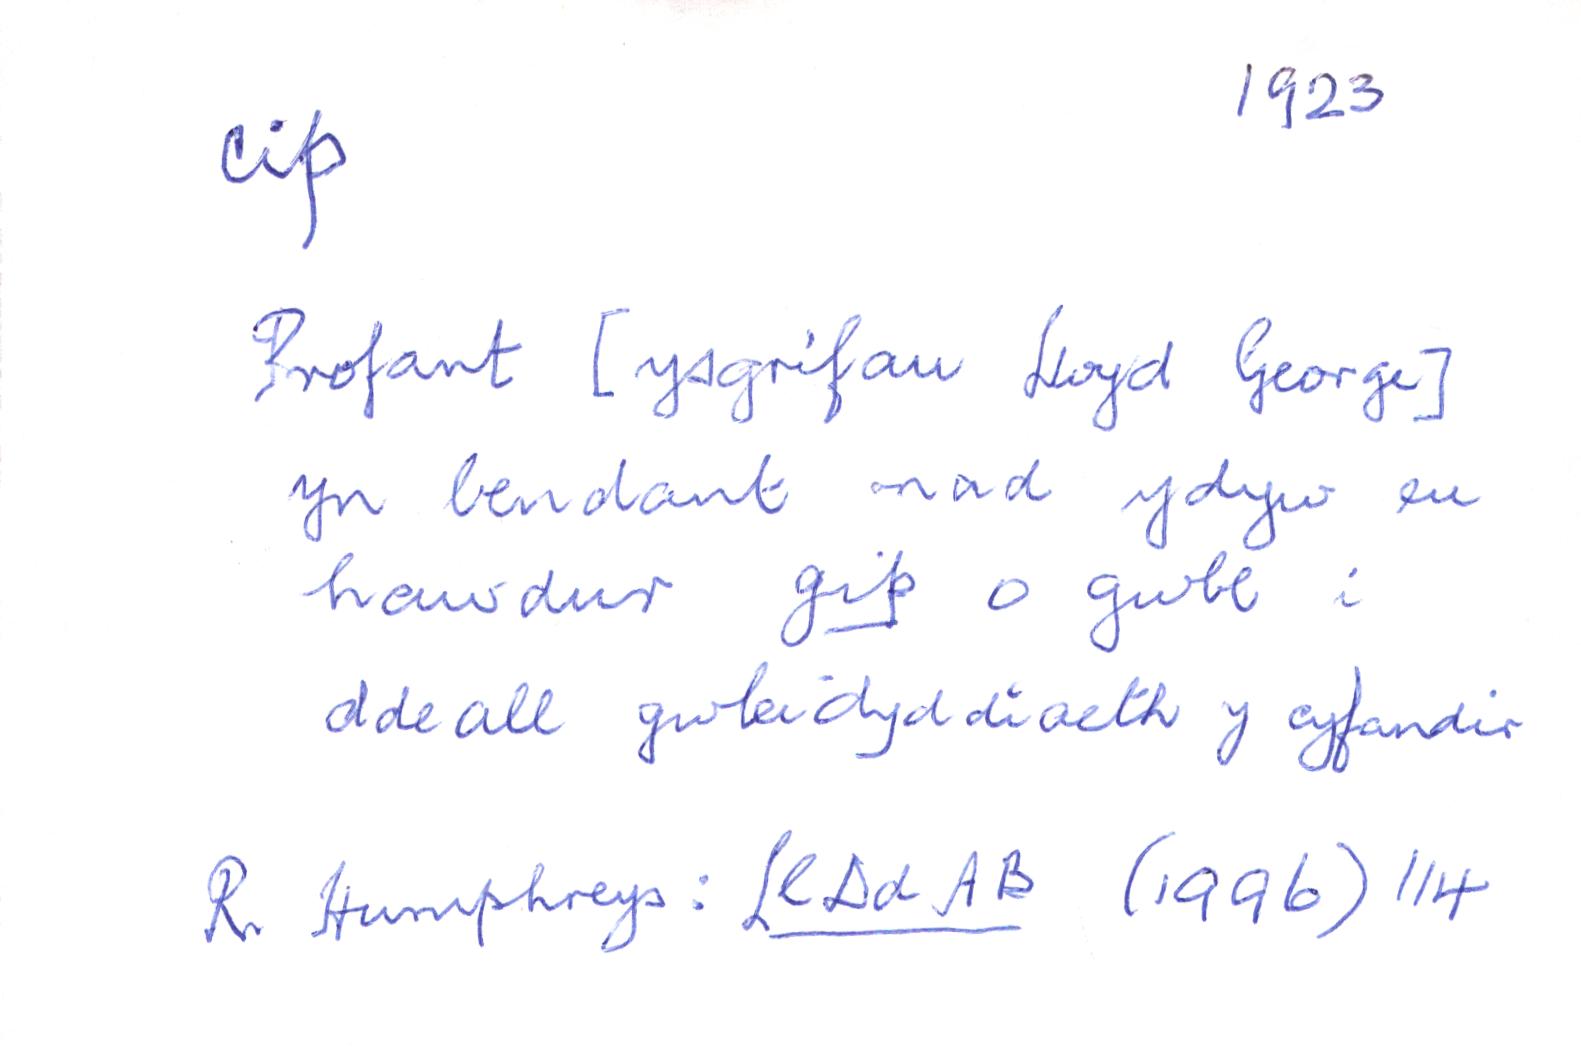 1923
cip
Profant [ysgrifau Lloyd George]
yn bendant nad ydyw eu
hawdur gip o gwbl i
ddeall gwleidyddiaeth y cyfandir
R. Humphreys: LlDdAB (1996) 114